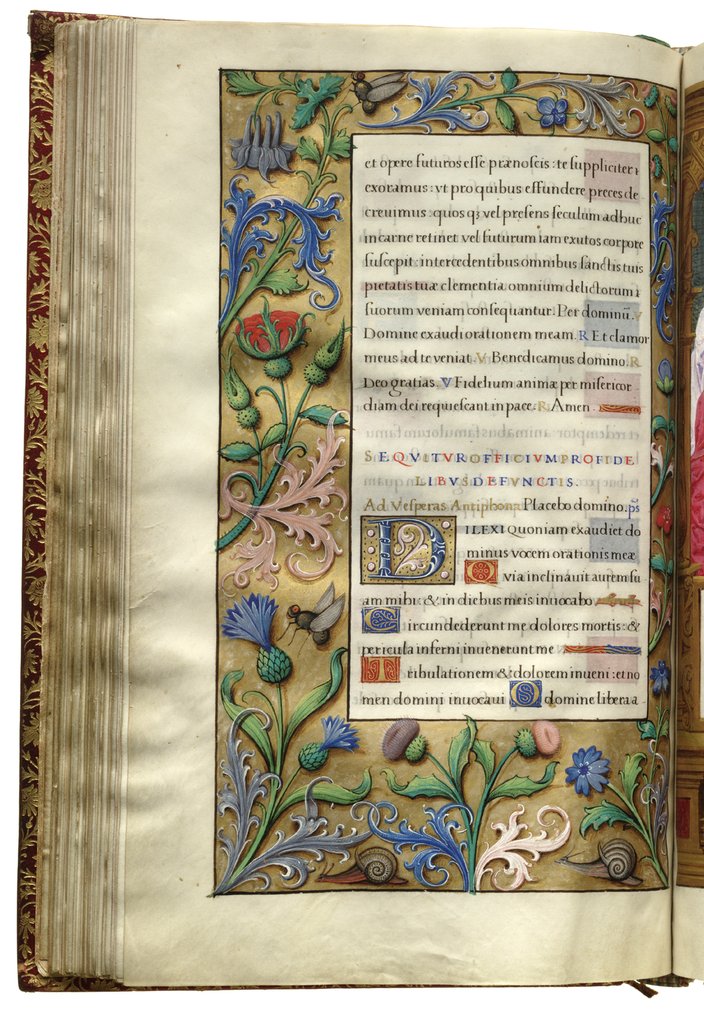 et opere futuros esse prænoscis : te suppliciter
exoramus : vt pro quibus effundere preces de
creuimus : quos q; vel presens seculum adhuc
in carne retinet vel futurum iam exutos corpore
suscepit : intercedentibus omnibus sanctis tuis
pietatis tuæ clementia omnium delictorum
suorum veniam consequantur. Per dominū. V
Domine exaudi orationem meam. R Et clamor
meus ad te veniat. V Benedicamus domino. R
Deo gratias. V Fidelium animæ per misericor
diam dei requiescant in pace. R Amen.
SEQVITVR OFFICIVM PRO FIDE
LIBVS DEFVNCTIS.
Ad Vesperas Antiphona: Placebo domino. ps
DILEXI Quoniam exaudiet do
minus vocem orationis meæ
Q via inclinauit aurem su
am mihi: & in diebus meis inuocabo
C ircundederunt me dolores mortis: &
pericula inferni inuenerunt me
T ribulationem & dolorem inueni: et no
men domini inuocaui O domine libera a